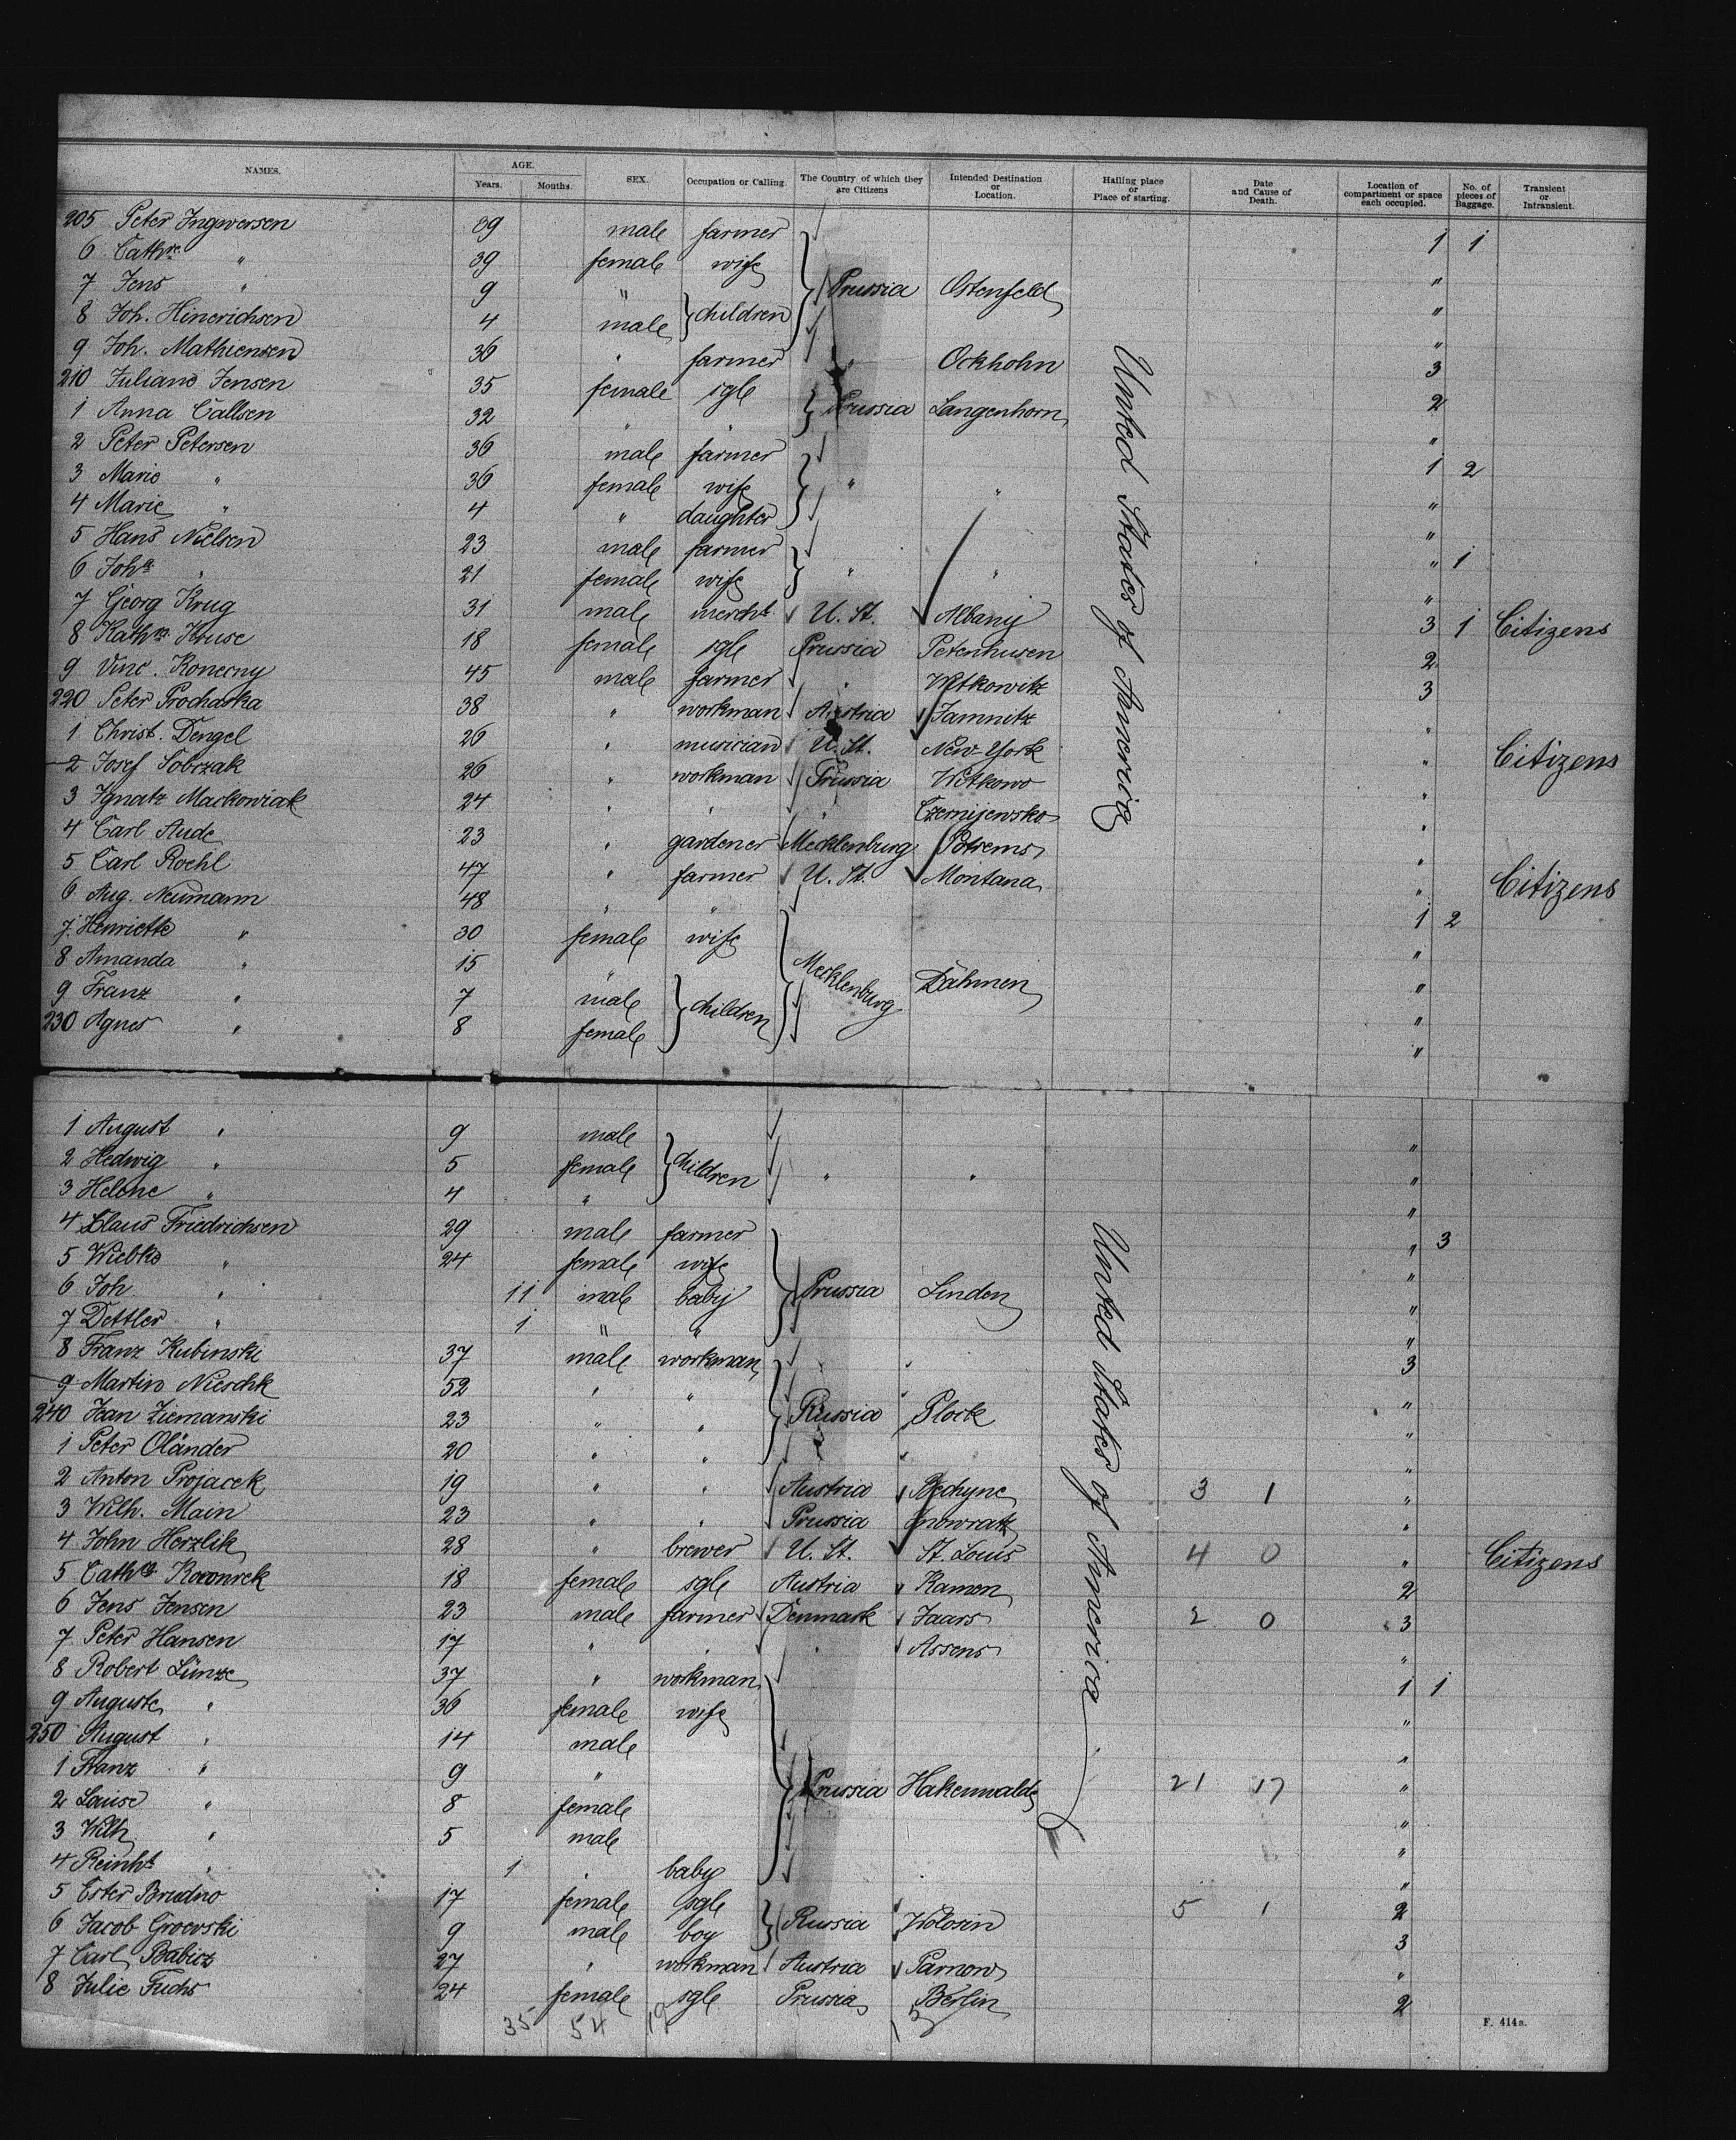 NAMES. AGE. Years. Months. SEX. Occupation or Calling. The Country of which they are Citizens Intended Destination or Location. Hailing place or Place of starting. Date and Cause of Death. Location of compartment or space each occupied. No. of pieces of Baggage. Transient or Intransient.
205 Peter Ingwersen 39 male farmer 1 1
6 Cathne " 39 female wife "
7 Jens " 9 " children Prussia Ostenfeld "
8 Joh. Hinerichsen 4 male "
9 Joh. Mathiensen 36 " farmer " Ockholm 3
210 Juliane Jensen 35 female sgle Prussia Langenhorn 2
1 Anna Callsen 32 " " "
2 Peter Petersen 36 male farmer 1 2
3 Marie " 36 female wife " " "
4 Marie " 4 " daughter "
5 Hans Nielsen 23 male farmer " 1
6 Joha " 21 female wife " " "
7 Georg Krug 31 male mercht U. St. Albany 3 1 Citizens
8 Kathna Kruse 18 female sgle Prussia Petenhusen 2
9 Vinc. Konecny 45 male farmer " Witkowitz 3
220 Peter Prochaska 38 " workman Austria Jamnitz "
1 Christ. Dengel 26 " musician U. St. New-York " Citizens
2 Josef Sobrzak 26 " workman Prussia Witkowo "
3 Ignatz Mackowiak 24 " " " Czernijewsko "
4 Carl Aude 23 " gardener Mecklenburg Potrems "
5 Carl Roehl 47 " farmer U. St. Montana " Citizens
6 Aug. Neumann 48 " " 1 2
7 Henriette " 30 female wife "
8 Amanda " 15 " Mecklenburg Dahmen "
9 Franz " 7 male children "
230 Agnes " 8 female "
United States of America
1 August " 9 male "
2 Hedwig " 5 female children " " "
3 Helene " 4 " "
4 Claus Friedrichsen 29 male farmer " 3
5 Wiebke " 24 female wife "
6 Joh " 11 male baby Prussia Linden "
7 Dettler " 1 " " "
8 Franz Kubinski 37 male workman " 3
9 Martin Nieschk 52 " " " "
240 Jean Ziemanski 23 " " Russia Plock "
1 Peter Oländer 20 " " " "
2 Anton Projacek 19 " " Austria Bechyne 3 1 "
3 Wilh. Main 23 " " Prussia Inowratz "
4 John Herzlik 28 " brewer U. St. St. Louis 4 0 " Citizens
5 Cathna 18 female sgle Austria Kamen 2
6 Jens Jensen 23 male farmer Denmark Jaars 2 0 3
7 Peter Hansen 17 " " " Assens "
8 Robert Lünze 37 " workman 1 1
9 Auguste " 36 female wife "
250 August " 14 male "
1 Franz " 9 " Prussia Hakenwalde 21 17 "
2 Louise " 8 female "
3 Wilh " 5 male "
4 Reinht " 1 " baby "
5 Ester Brudno 17 female sgle Russia Wolosin 5 1 2
6 Jacob Groewski 9 male boy 3
7 Carl Babicz 27 " workman Austria Parnow "
8 Julie Fuchs 24 female sgle Prussia Berlin 2
United States of America
35 54 19
F. 414a.